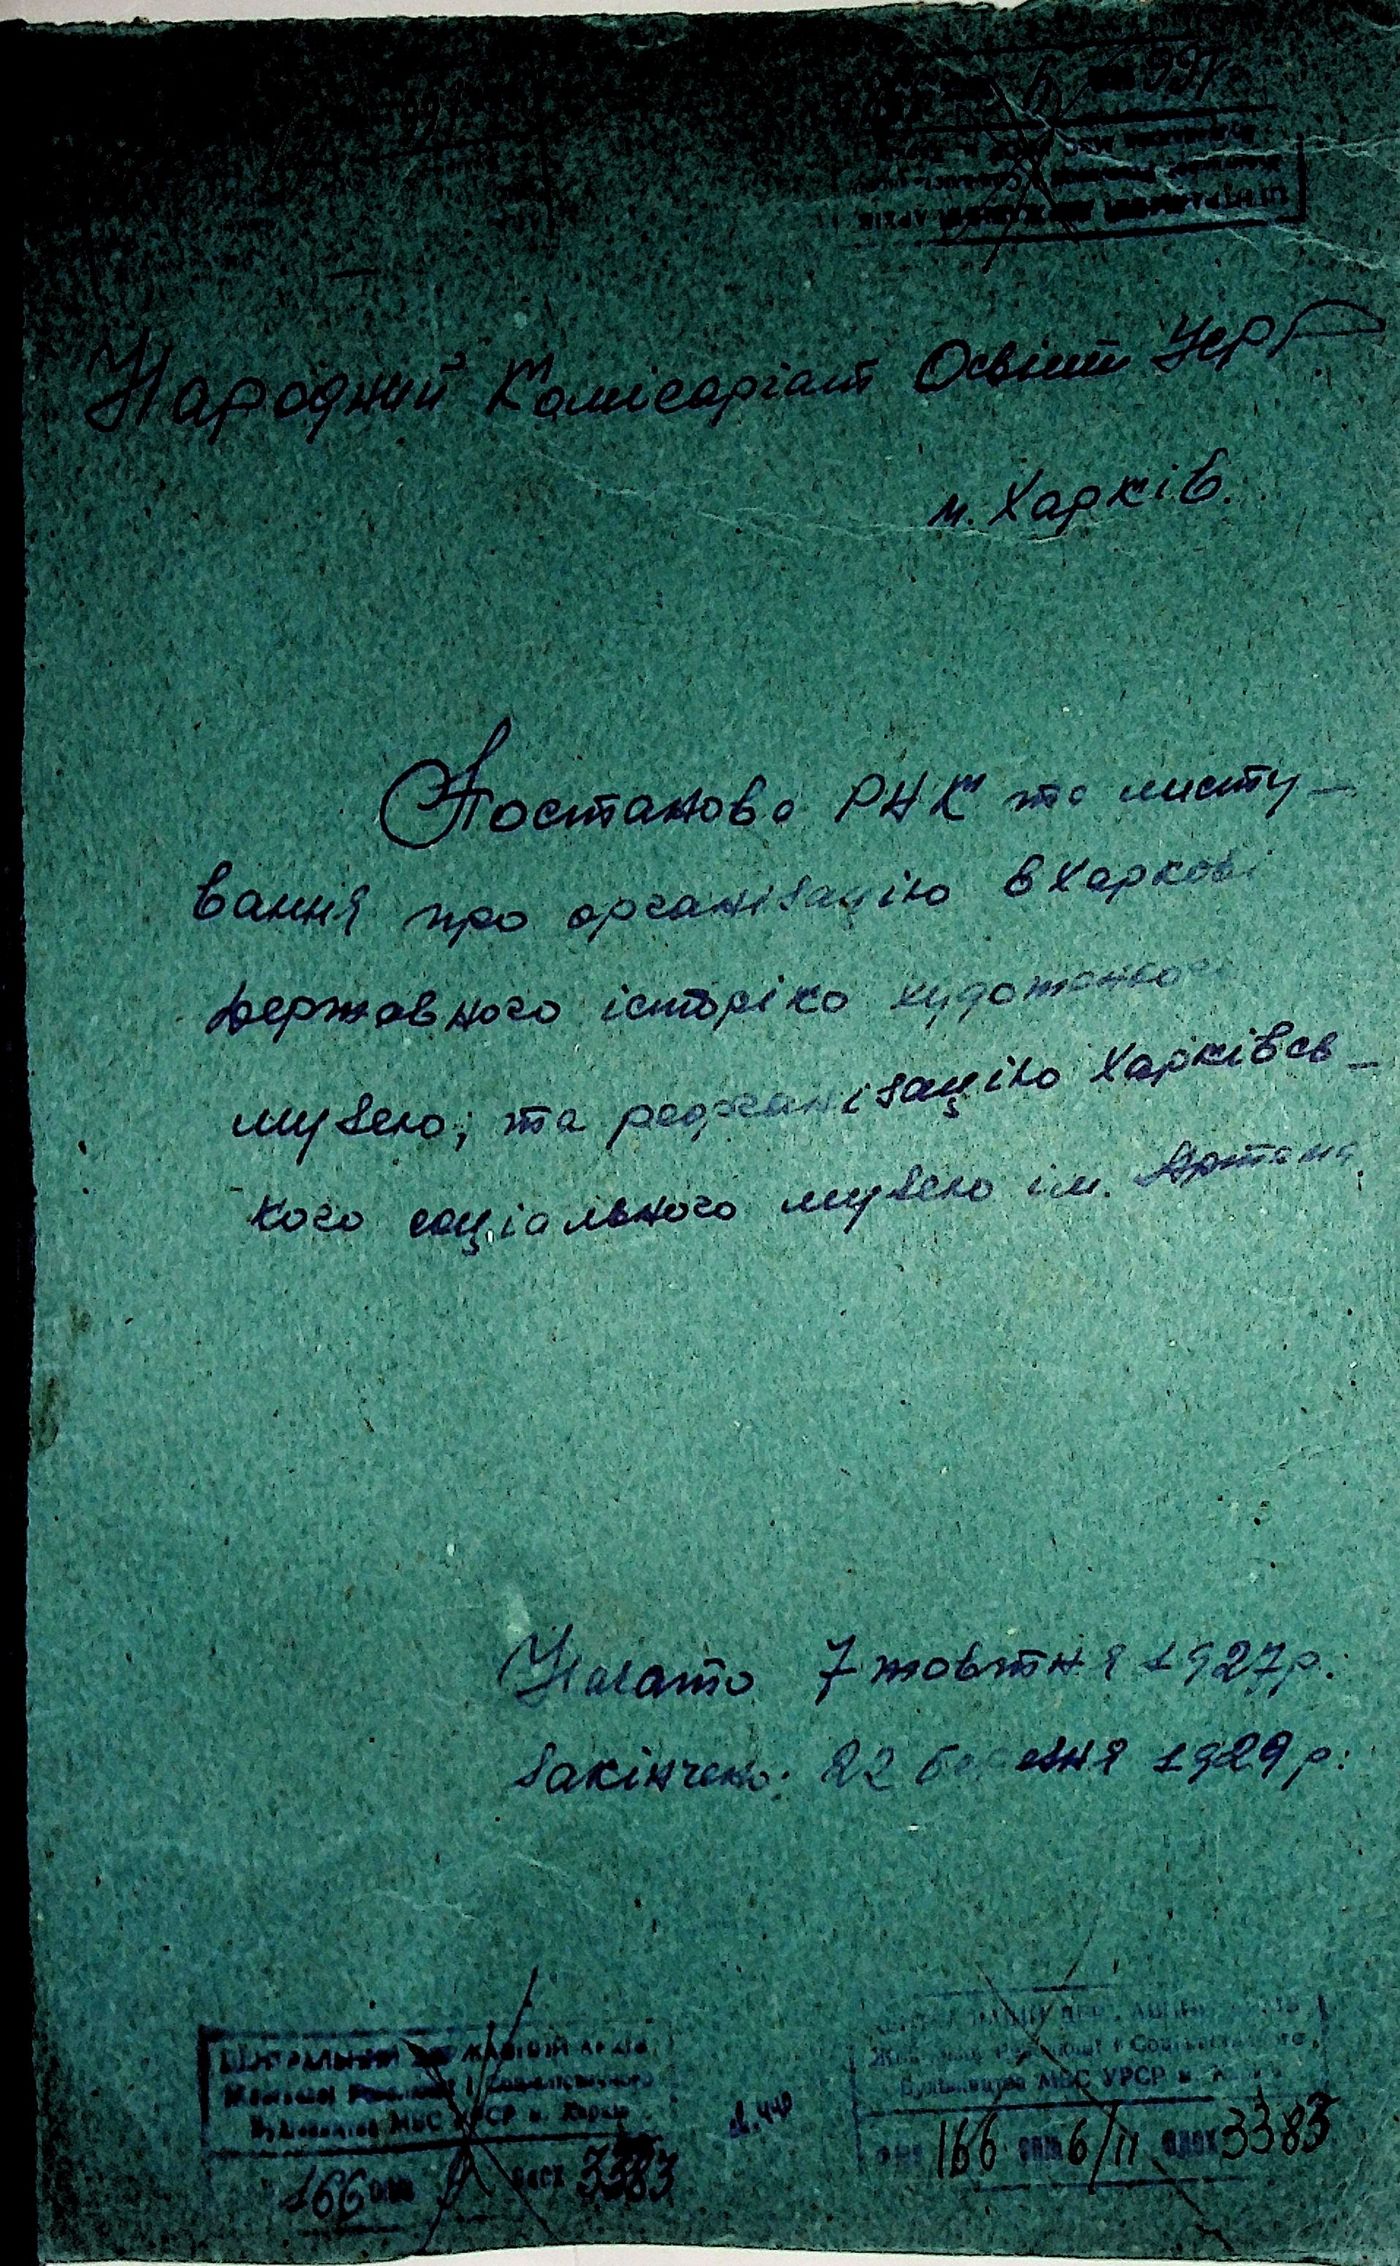 Народний Комісаріат Освіти УСРР
м. Харків.
Постанова РНК та листу-
вання про організацію в Харкові
державного історіко художнього
музею; та реорганізацію Харківсь-
кого соціального музею ім. Артема.
Почато 7 жовтня 1927 р.
Закінчено. 22 березня 1929 р.
ЦЕНТРАЛЬНИЙ ДЕРЖАВНИЙ АРХІВ
Жовтневої Революції і Соціалістичного
Будівництва МВС УРСР м. Харків
166 опис 9 одсх 3383
ЦЕНТРАЛЬНИЙ ДЕРЖАВНИЙ АРХІВ
Жовтневої Революції і Соціалістичного
Будівництва МВС УРСР м. Харків
Фонд 166 опис 6/II одсх 3383